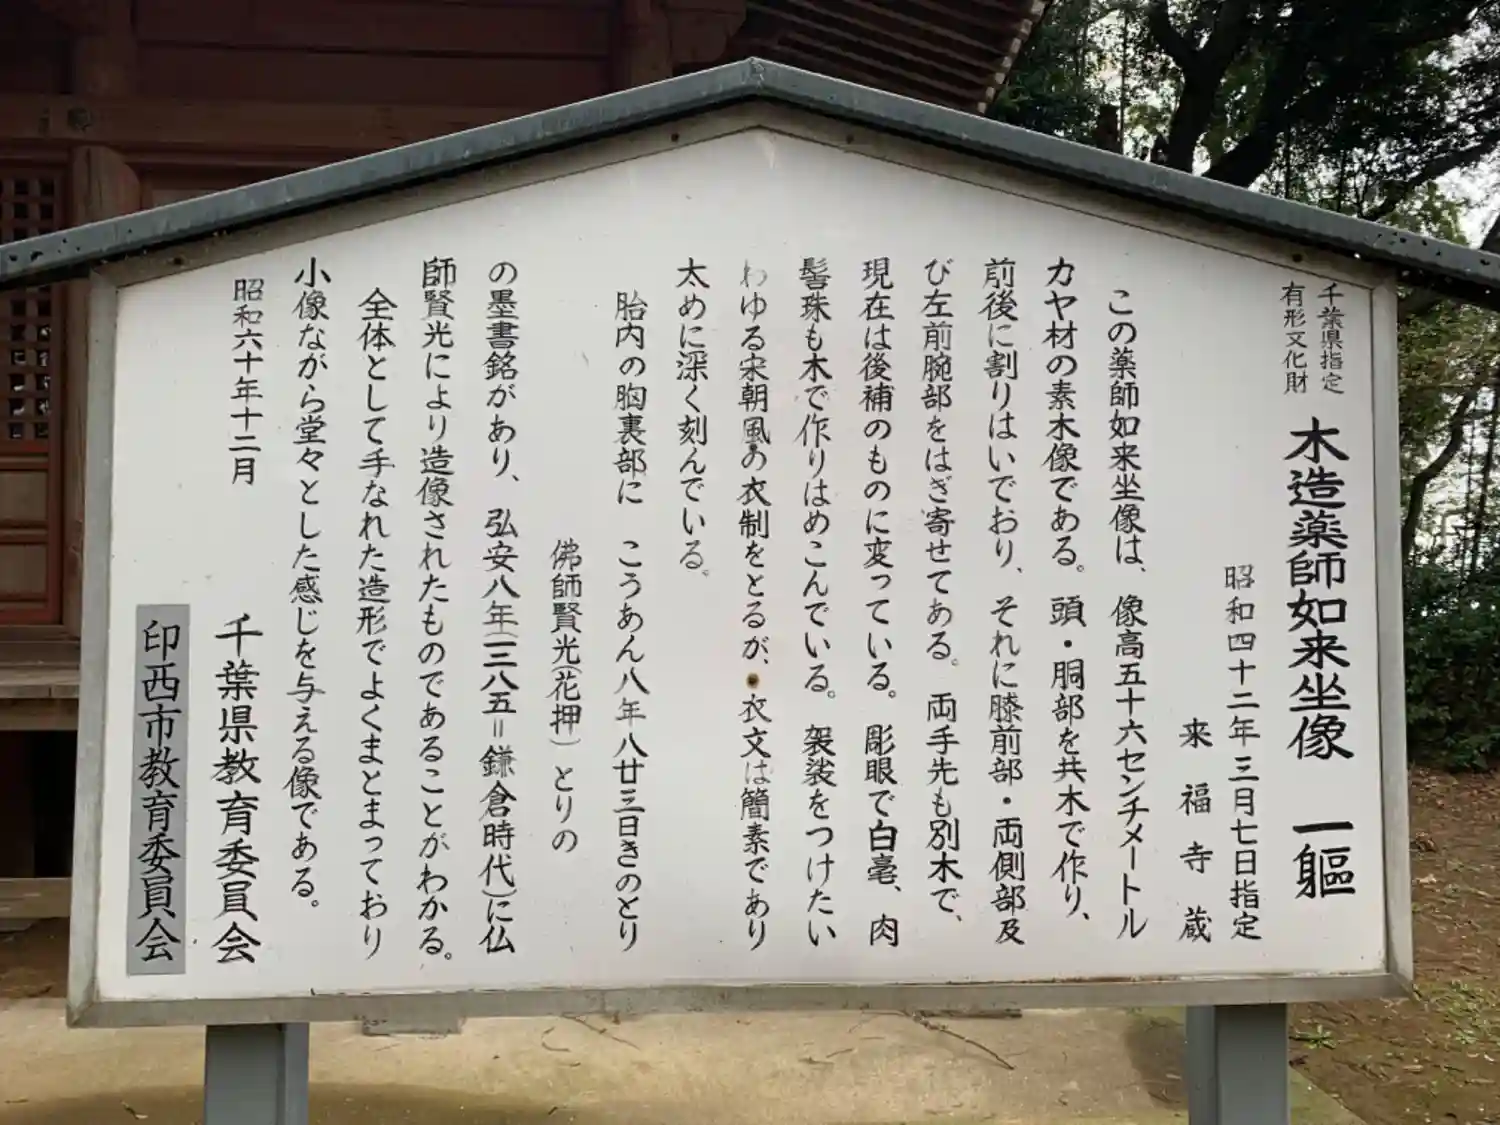 千葉県指定
有形文化財
木造薬師如来坐像　一軀
昭和四十二年三月七日指定
来福寺蔵
この薬師如来坐像は、像高五十六センチメートル
カヤ材の素木像である。頭・胴部を共木で作り、
前後に割りはいでおり、それに膝前部・両側部及
び左前腕部をはぎ寄せてある。両手先も別木で、
現在は後補のものに変っている。彫眼で白毫、肉
髻珠も木で作りはめこんでいる。袈裟をつけたい
わゆる宋朝風の衣制をとるが、衣文は簡素であり
太めに深く刻んでいる。
胎内の胸裏部に　こうあん八年八廿三日きのとり
佛師賢光(花押)とりの
の墨書銘があり、弘安八年(一二八五＝鎌倉時代)に仏
師賢光により造像されたものであることがわかる。
全体として手なれた造形でよくまとまっており
小像ながら堂々とした感じを与える像である。
昭和六十年十二月
千葉県教育委員会
印西市教育委員会